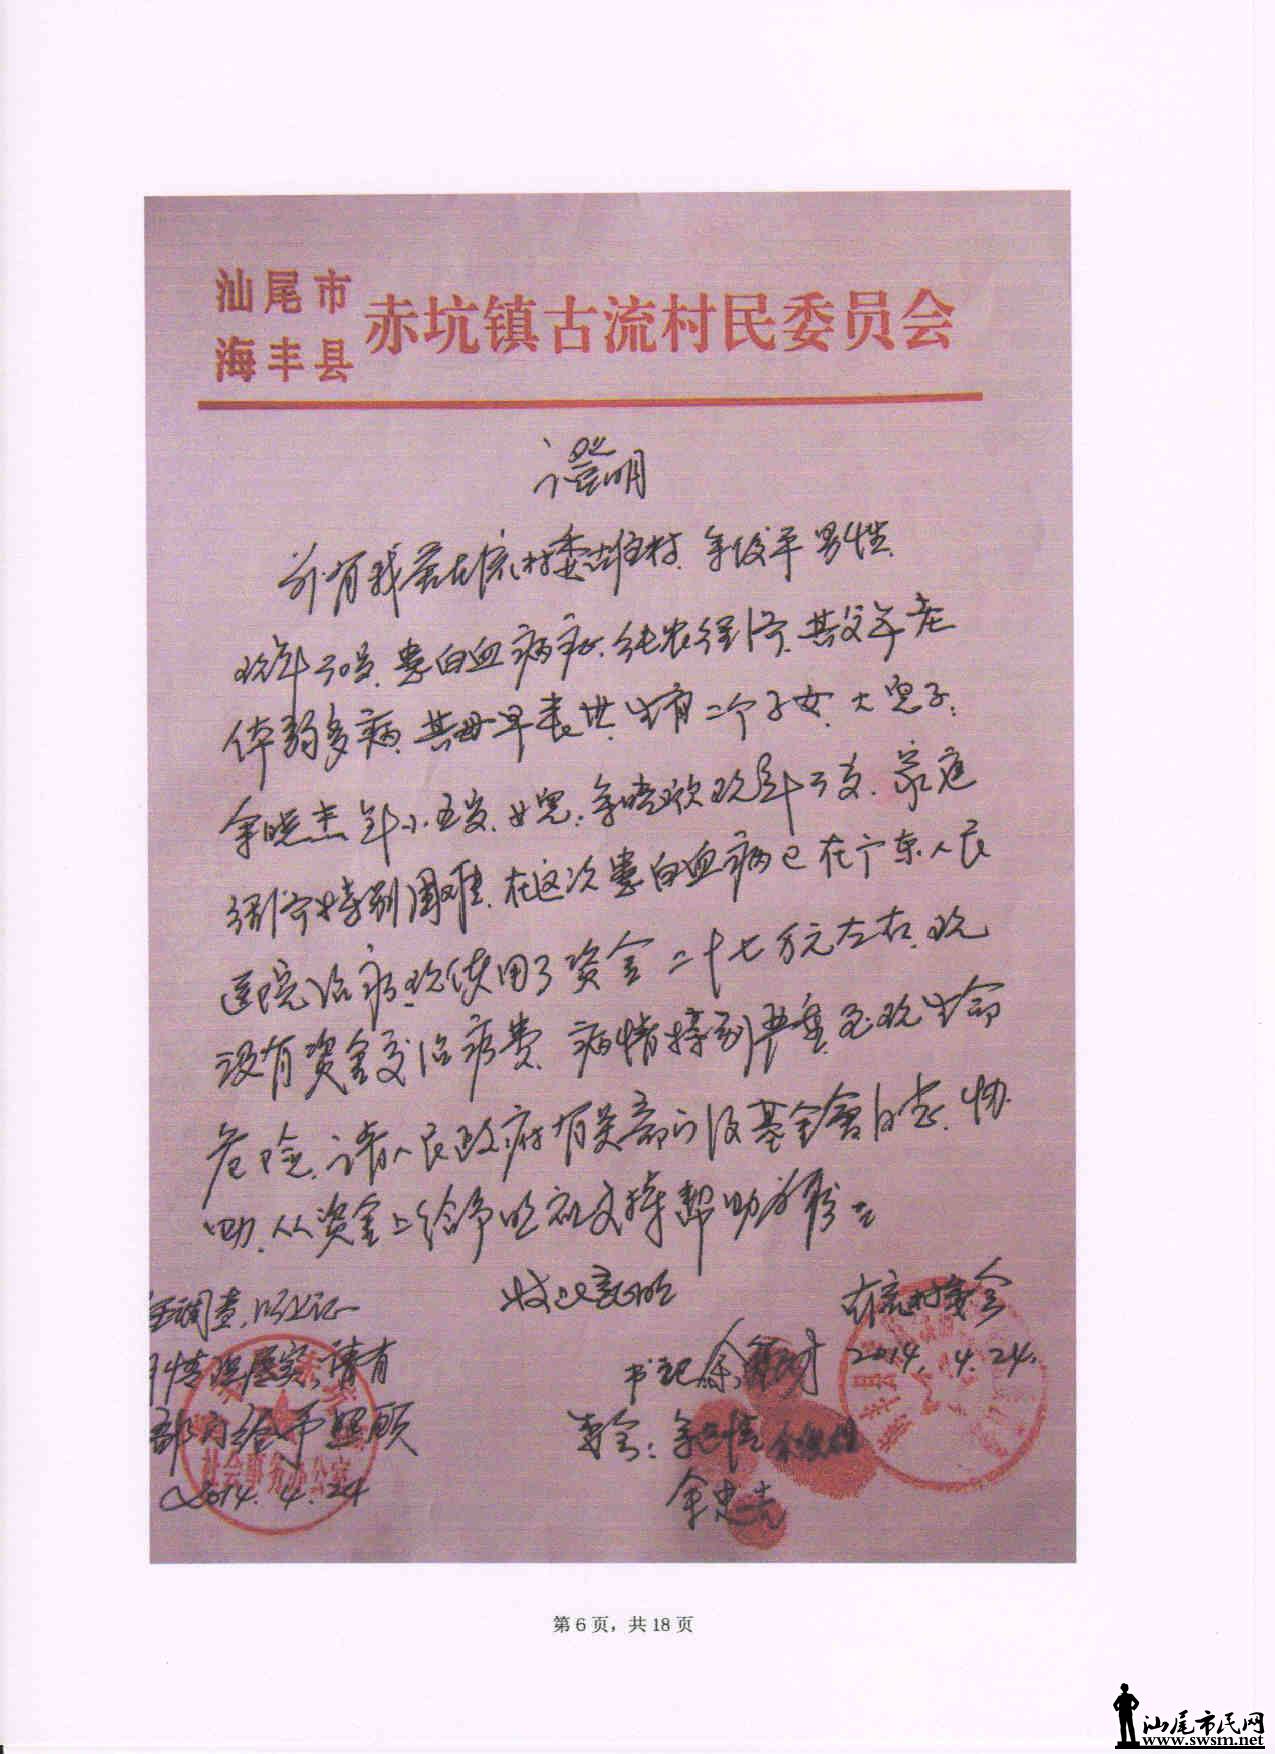 汕尾市
海丰县
赤坑镇古流村民委员会
證明
兹有我古流村委 村 余俊平 男性
现年30岁 患白血病症 纯农经济 其父年老
体弱多病 其母早丧世 生有二个子女 大儿子：
余晓杰 年小五岁 女儿：余晓欣 现年3岁 家庭
经济特别困难 在这次患白血病已在广东人民
医院治疗 现使用了资金二十七万元左右 现
没有资金交治疗费 病情特别严重 至现生命
危险 请人民政府有关部门及基金會 协
助 从资金上给予 支持帮助
特此证明
古流村委会
2014.4.24.
书记 余 财
委会：余
余忠
经调查，以上证
情况属实，请有
部门给予照顾
社会事务办公室
2014.4.24
第 6 页，共 18 页
汕尾市民网
www.swsm.net